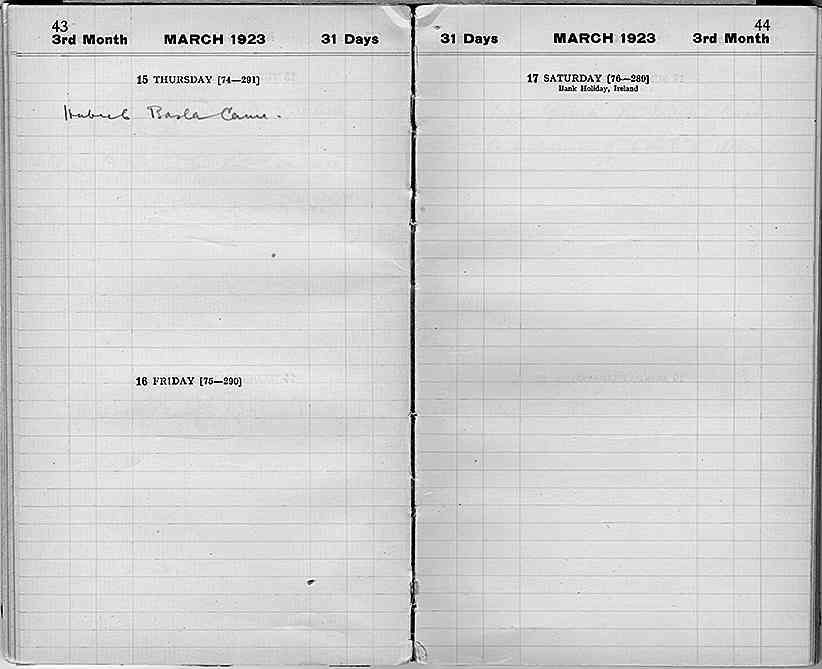 43
3rd Month MARCH 1923 31 Days
15 THURSDAY [74—291]
Came.
16 FRIDAY [75—290]
44
31 Days MARCH 1923 3rd Month
17 SATURDAY [76—289]
Bank Holiday, Ireland